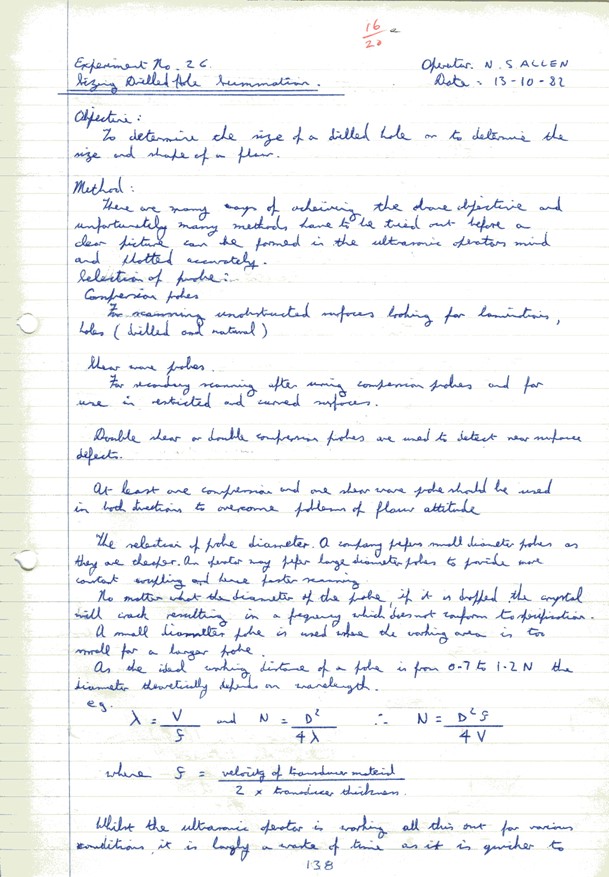 16
20
Experiment No. 26. Operator. N. S. ALLEN
Sizing Drilled Hole Summation. Date - 13-10-82
Objective:
To determine the size of a drilled hole or to determine the
size and shape of a flaw.
Method:
There are many ways of acheiving the above objective and
unfortunately many methods have to be tried out before a
clear picture can be formed in the ultrasonic operators mind
and plotted accurately.
Selection of probe:
Compression probes
For scanning unobstructed surfaces looking for laminations,
holes (drilled and natural)
Shear wave probes.
For secondary scanning after using compression probes and for
use in restricted and curved surfaces.
Double shear or double compression probes are used to detect near surface
defects.
At least one compression and one shear wave probe should be used
in both directions to overcome problems of flaw attitude
The selection of probe diameter. A company prefers small diameter probes as
they are cheaper. An operator may prefer large diameter probes to provide more
contact coupling and hence faster scanning.
No matter what the diameter of the probe, if it is dropped the crystal
will crack resulting in a frequency which does not conform to specification.
A small diameter probe is used where the working area is too
small for a larger probe.
As the ideal working distance of a probe is from 0.7 to 1.2 N the
diameter theoretically depends on wavelength.
eg.
λ = V/f and N = D²/4λ ∴ N = D²f/4V
where f = velocity of transducer material / 2 x transducer thickness.
Whilst the ultrasonic operator is working all this out for various
conditions, it is largly a waste of time as it is quicker to
138